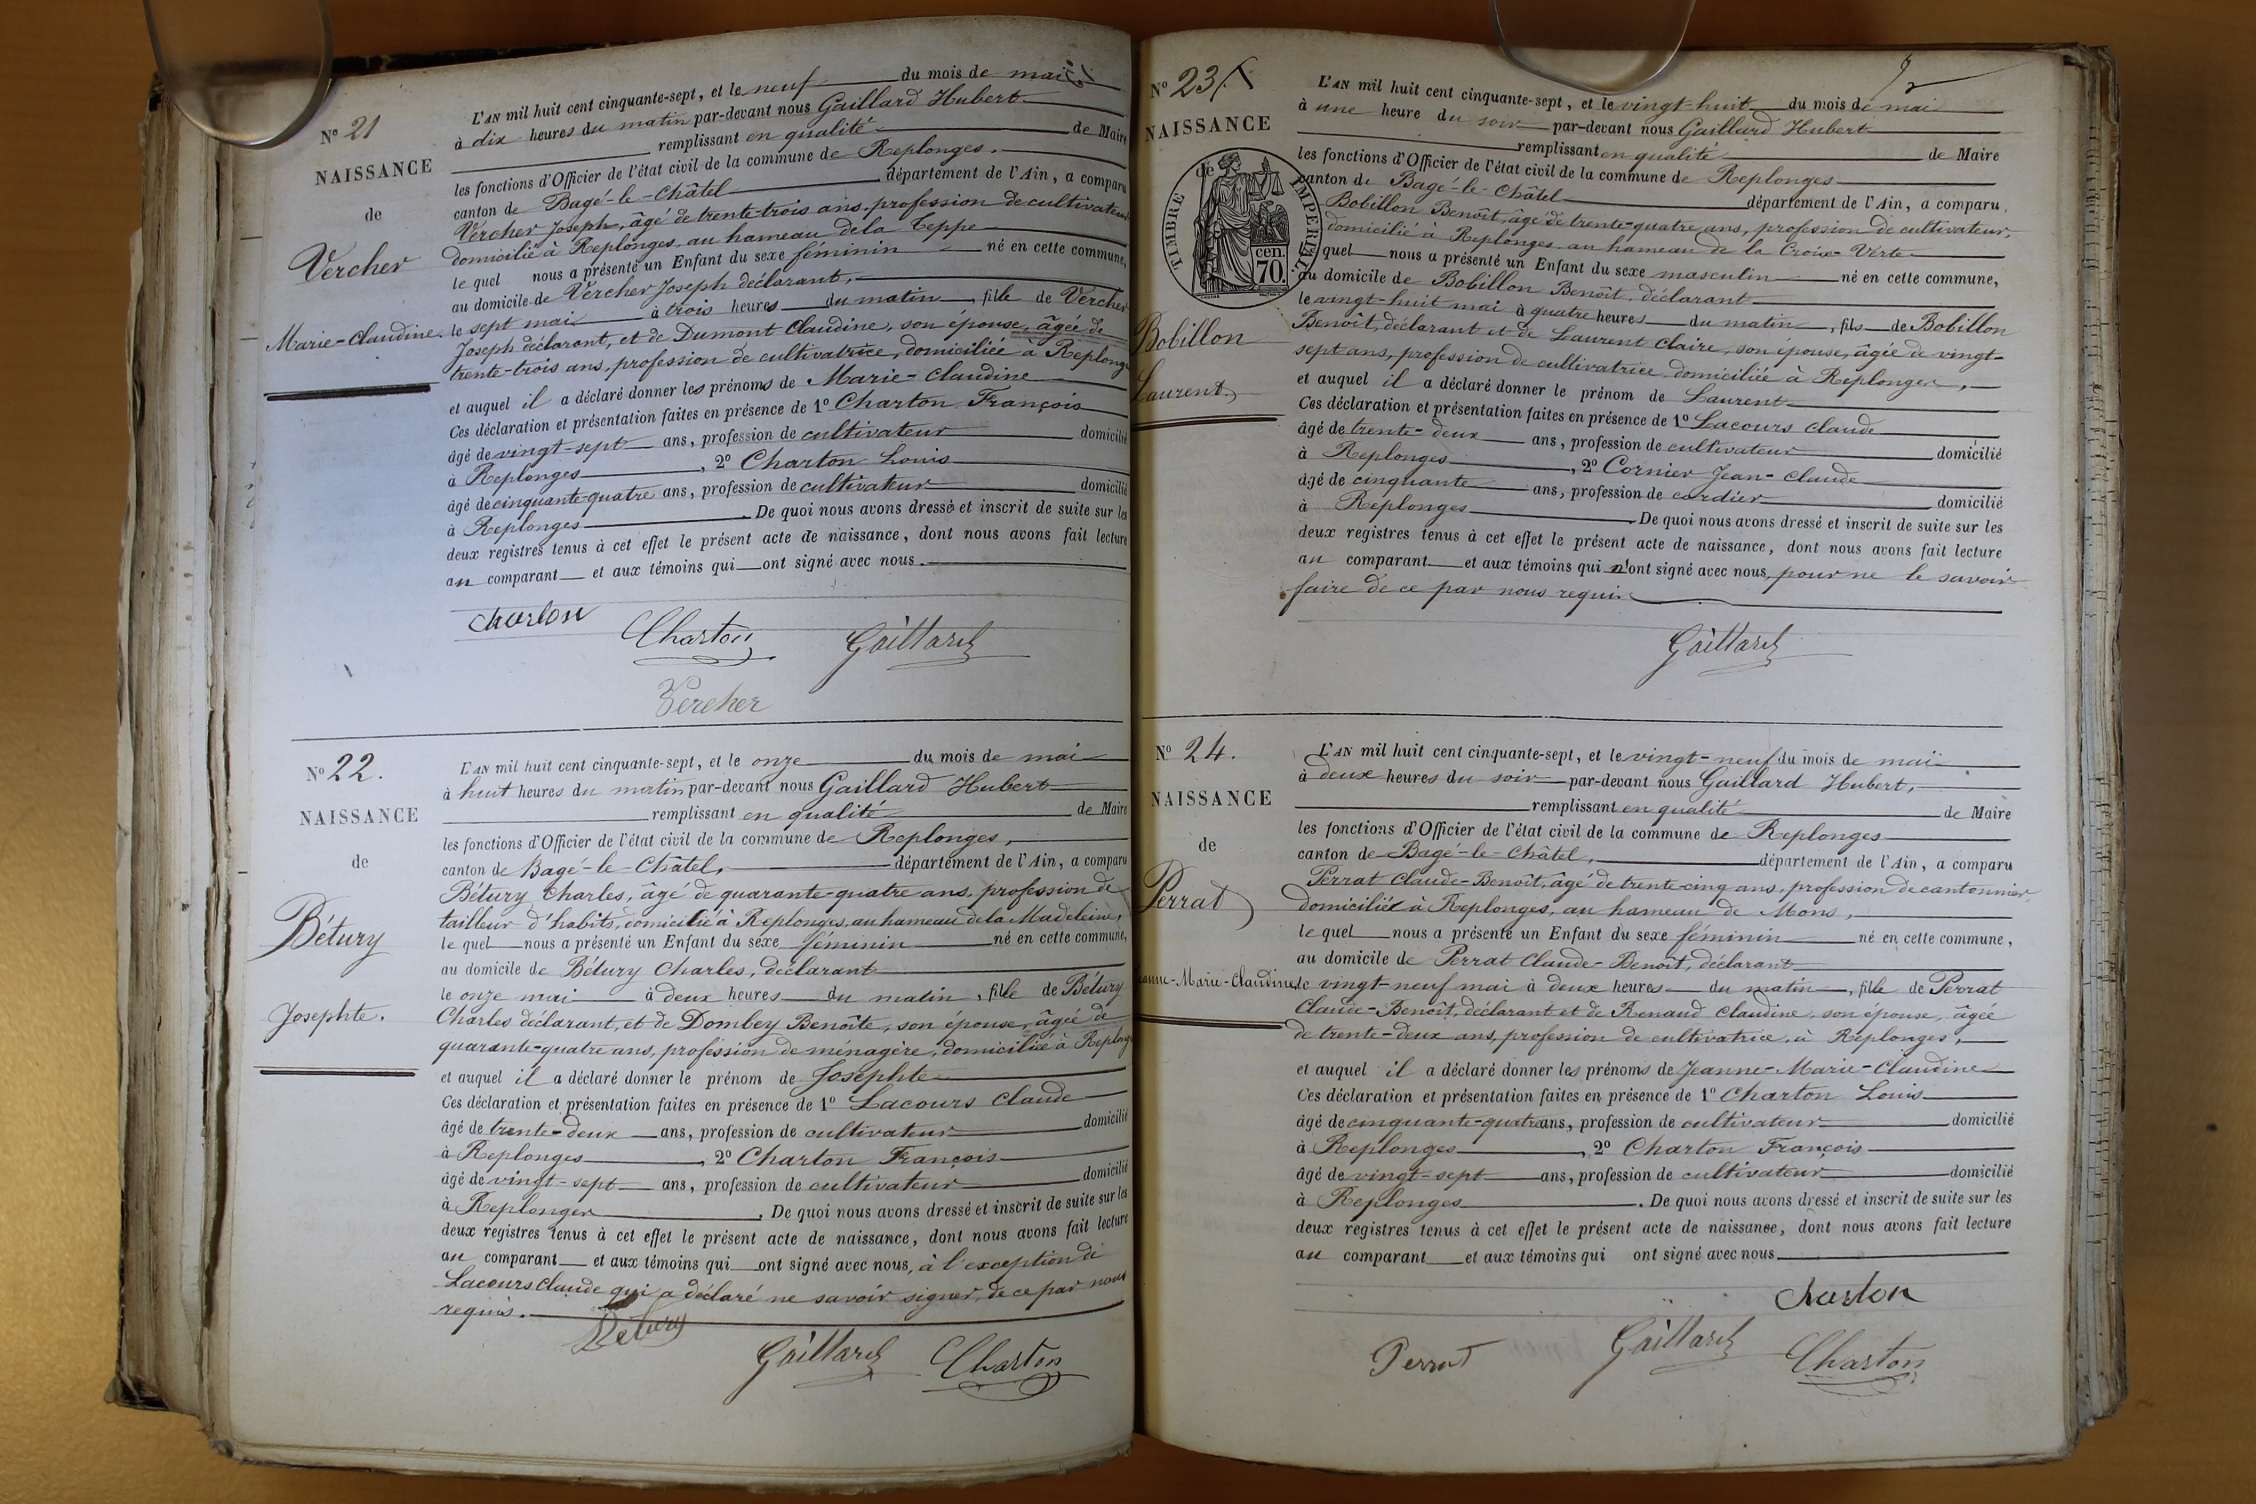 N° 21
NAISSANCE
de
Vercher
Marie-Claudine.
L'AN mil huit cent cinquante-sept, et le neuf du mois de mai
à dix heures du matin par-devant nous Gaillard Hubert
remplissant en qualité de Maire
les fonctions d'Officier de l'état civil de la commune de Replonges,
canton de Bagé-le-Châtel département de l'Ain, a comparu
Vercher Joseph, âgé de trente-trois ans, profession de cultivateur
domicilié à Replonges au hameau de la Teppe
le quel nous a présenté un Enfant du sexe féminin né en cette commune,
au domicile de Vercher Joseph déclarant,
le sept mai à trois heures du matin, fille de Vercher
Joseph déclarant, et de Dumont Claudine, son épouse, âgée de
trente-trois ans, profession de cultivatrice, domiciliée à Replong
et auquel il a déclaré donner les prénoms de Marie-Claudine
Ces déclaration et présentation faites en présence de 1° Charton François
âgé de vingt-sept ans, profession de cultivateur domicilié
à Replonges, 2° Charton Louis
âgé de cinquante-quatre ans, profession de cultivateur domicilié
à Replonges. De quoi nous avons dressé et inscrit de suite sur les
deux registres tenus à cet effet le présent acte de naissance, dont nous avons fait lecture
au comparant et aux témoins qui ont signé avec nous.
Charton
Charton Gaillard
Vercher
N° 22.
NAISSANCE
de
Bétury
Josephte.
L'AN mil huit cent cinquante-sept, et le onze du mois de mai
à huit heures du matin par-devant nous Gaillard Hubert
remplissant en qualité de Maire
les fonctions d'Officier de l'état civil de la commune de Replonges,
canton de Bagé-le-Châtel, département de l'Ain, a comparu
Bétury Charles, âgé de quarante-quatre ans, profession de
tailleur d'habits, domicilié à Replonges, au hameau de la Madeleine,
le quel nous a présenté un Enfant du sexe féminin né en cette commune,
au domicile de Bétury Charles, déclarant
le onze mai à deux heures du matin, fille de Bétury
Charles déclarant, et de Dombey Benoîte, son épouse, âgée de
quarante-quatre ans, profession de ménagère, domiciliée à Replong
et auquel il a déclaré donner le prénom de Josephte
Ces déclaration et présentation faites en présence de 1° Lacours Claude
âgé de trente-deux ans, profession de cultivateur domicilié
à Replonges, 2° Charton François
âgé de vingt-sept ans, profession de cultivateur domicilié
à Replonges. De quoi nous avons dressé et inscrit de suite sur les
deux registres tenus à cet effet le présent acte de naissance, dont nous avons fait lecture
au comparant et aux témoins qui ont signé avec nous, à l'exception de
Lacours Claude qui a déclaré ne savoir signer, de ce par nous
requis.
Bétury
Gaillard Charton
N° 23.
NAISSANCE
de
TIMBRE IMPERIAL
cen.
70.
Bobillon
Laurent
L'AN mil huit cent cinquante-sept, et le vingt-huit du mois de mai
à une heure du soir par-devant nous Gaillard Hubert
remplissant en qualité de Maire
les fonctions d'Officier de l'état civil de la commune de Replonges
canton de Bagé-le-Châtel département de l'Ain, a comparu,
Bobillon Benoît, âgé de trente-quatre ans, profession de cultivateur,
domicilié à Replonges au hameau de la Croix-Verte
quel nous a présenté un Enfant du sexe masculin né en cette commune,
au domicile de Bobillon Benoît, déclarant
le vingt-huit mai à quatre heures du matin, fils de Bobillon
Benoît, déclarant et de Laurent Claire, son épouse, âgée de vingt-
sept ans, profession de cultivatrice domiciliée à Replonges,
et auquel il a déclaré donner le prénom de Laurent
Ces déclaration et présentation faites en présence de 1° Lacours Claude
âgé de trente-deux ans, profession de cultivateur domicilié
à Replonges, 2° Cornier Jean-Claude
âgé de cinquante ans, profession de cordier domicilié
à Replonges. De quoi nous avons dressé et inscrit de suite sur les
deux registres tenus à cet effet le présent acte de naissance, dont nous avons fait lecture
au comparant et aux témoins qui n'ont signé avec nous, pour ne le savoir
faire de ce par nous requis
Gaillard
N° 24.
NAISSANCE
de
Perrat
anne-Marie-Claudine
L'AN mil huit cent cinquante-sept, et le vingt-neuf du mois de mai
à deux heures du soir par-devant nous Gaillard Hubert,
remplissant en qualité de Maire
les fonctions d'Officier de l'état civil de la commune de Replonges
canton de Bagé-le-Châtel, département de l'Ain, a comparu
Perrat Claude-Benoît, âgé de trente-cinq ans, profession de cantonnier,
domicilié à Replonges, au hameau de Mons,
le quel nous a présenté un Enfant du sexe féminin né en cette commune,
au domicile de Perrat Claude-Benoît, déclarant
le vingt-neuf mai à deux heures du matin, fille de Perrat
Claude-Benoît, déclarant et de Renaud Claudine, son épouse, âgée
de trente-deux ans, profession de cultivatrice, à Replonges,
et auquel il a déclaré donner les prénoms de Jeanne-Marie-Claudine
Ces déclaration et présentation faites en présence de 1° Charton Louis
âgé de cinquante-quatre ans, profession de cultivateur domicilié
à Replonges, 2° Charton François
âgé de vingt-sept ans, profession de cultivateur domicilié
à Replonges. De quoi nous avons dressé et inscrit de suite sur les
deux registres tenus à cet effet le présent acte de naissance, dont nous avons fait lecture
au comparant et aux témoins qui ont signé avec nous
Charton
Perrat Gaillard Charton